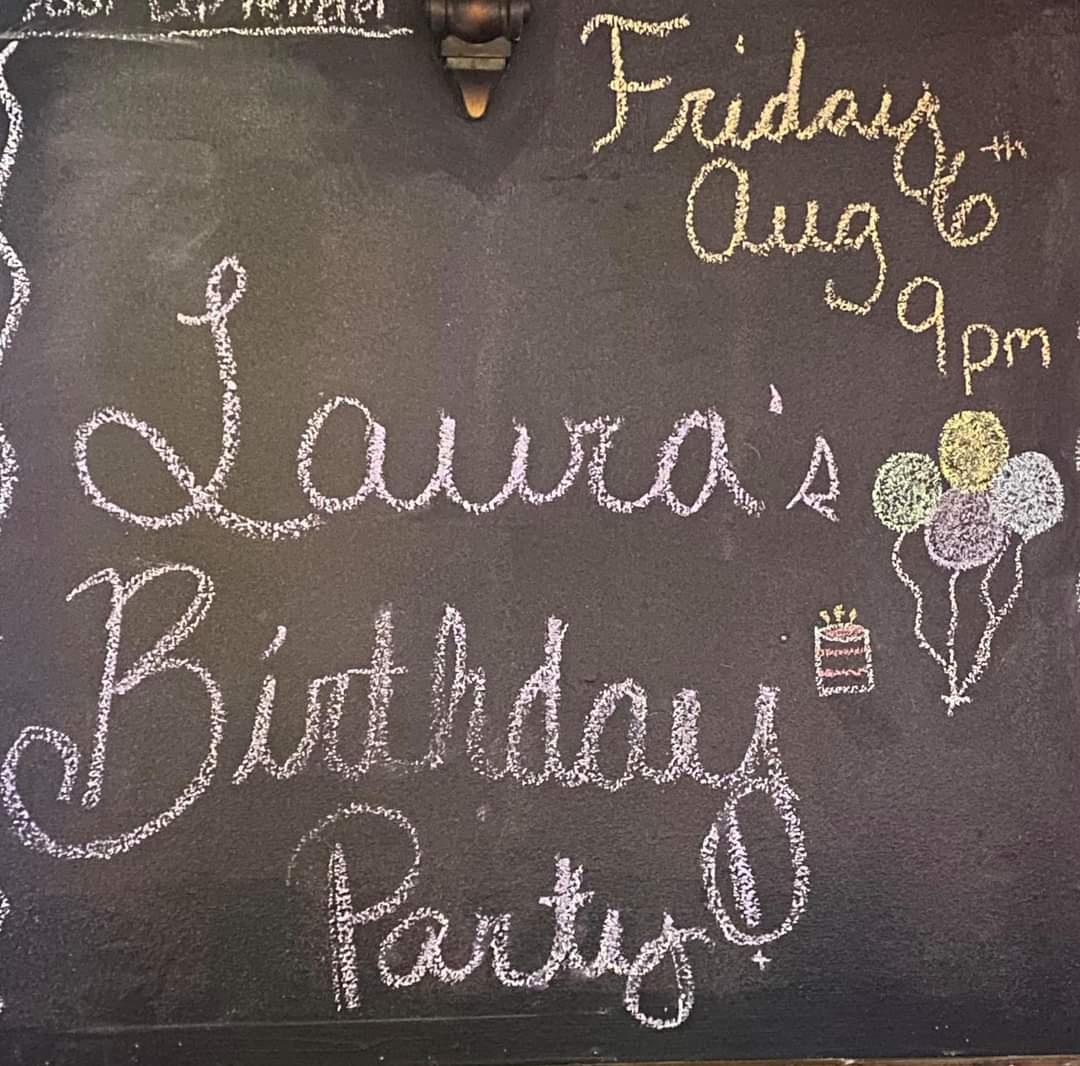 Friday
Aug 6th
9pm
Laura's
Birthday
Party